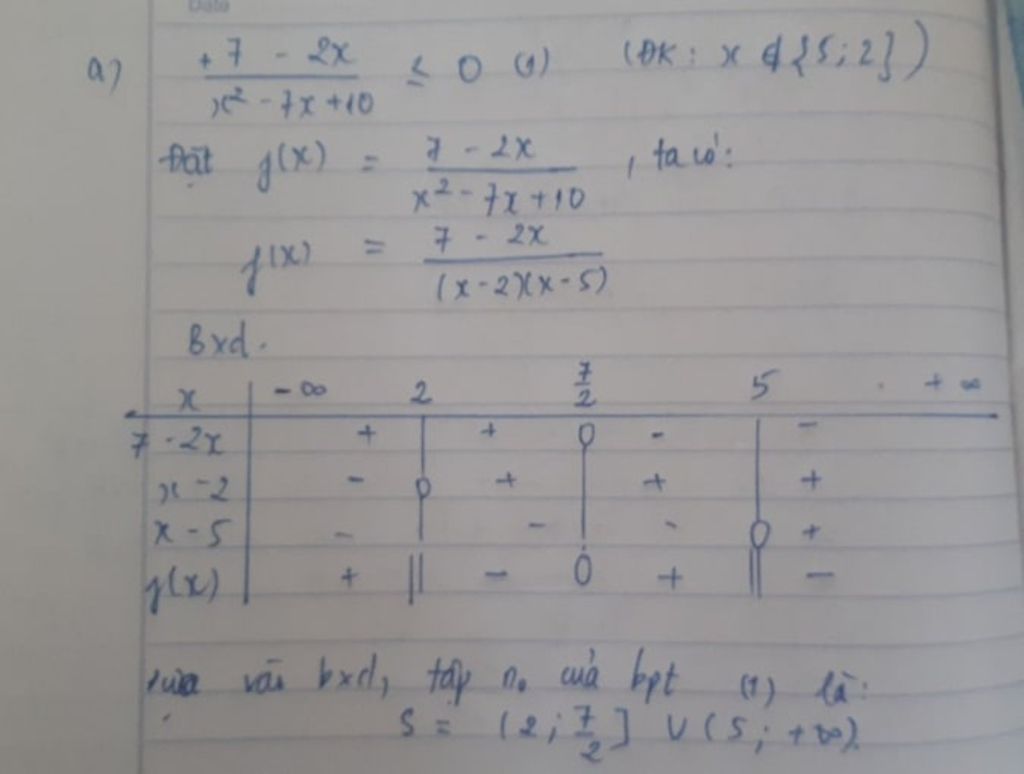 Date
a) + 7 - 2x / x² - 7x + 10 ≤ 0 (1) (ĐK: x ∉ {5; 2})
Đặt f(x) = 7 - 2x / x² - 7x + 10 , ta có:
f(x) = 7 - 2x / (x-2)(x-5)
Bxd.
x | -∞ 2 7/2 5 +∞
7 - 2x | + | + 0 - | -
x - 2 | - 0 + | + | +
x - 5 | - | - | - 0 + 
f(x) | + || - 0 + || -
vào bxd, tập n. của bpt (1) là:
S = (2; 7/2] ∪ (5; +∞).